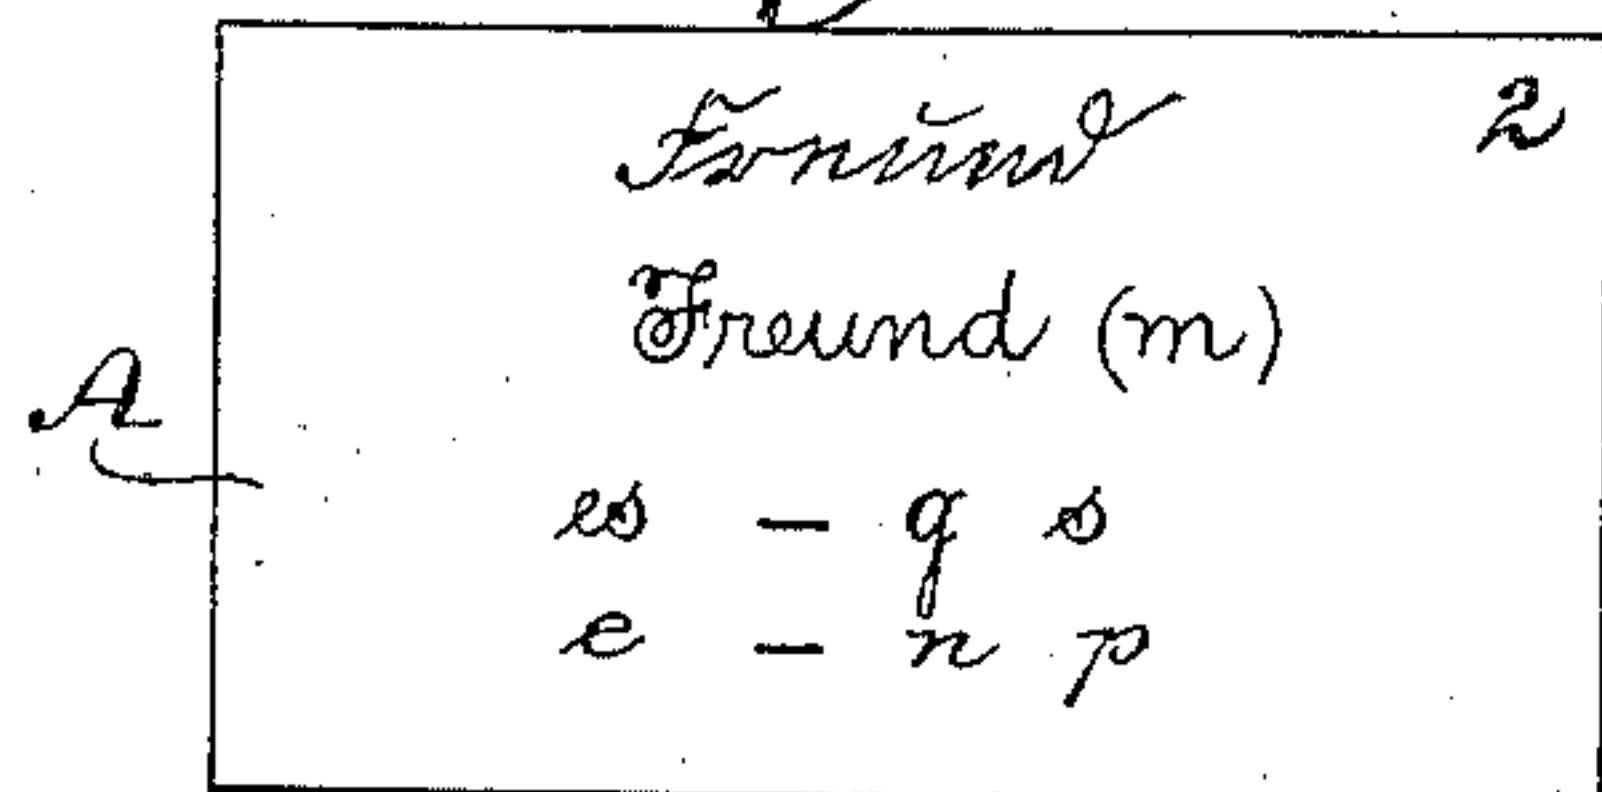 Freund 2
Freund (m)
A
es - g s
e - n p